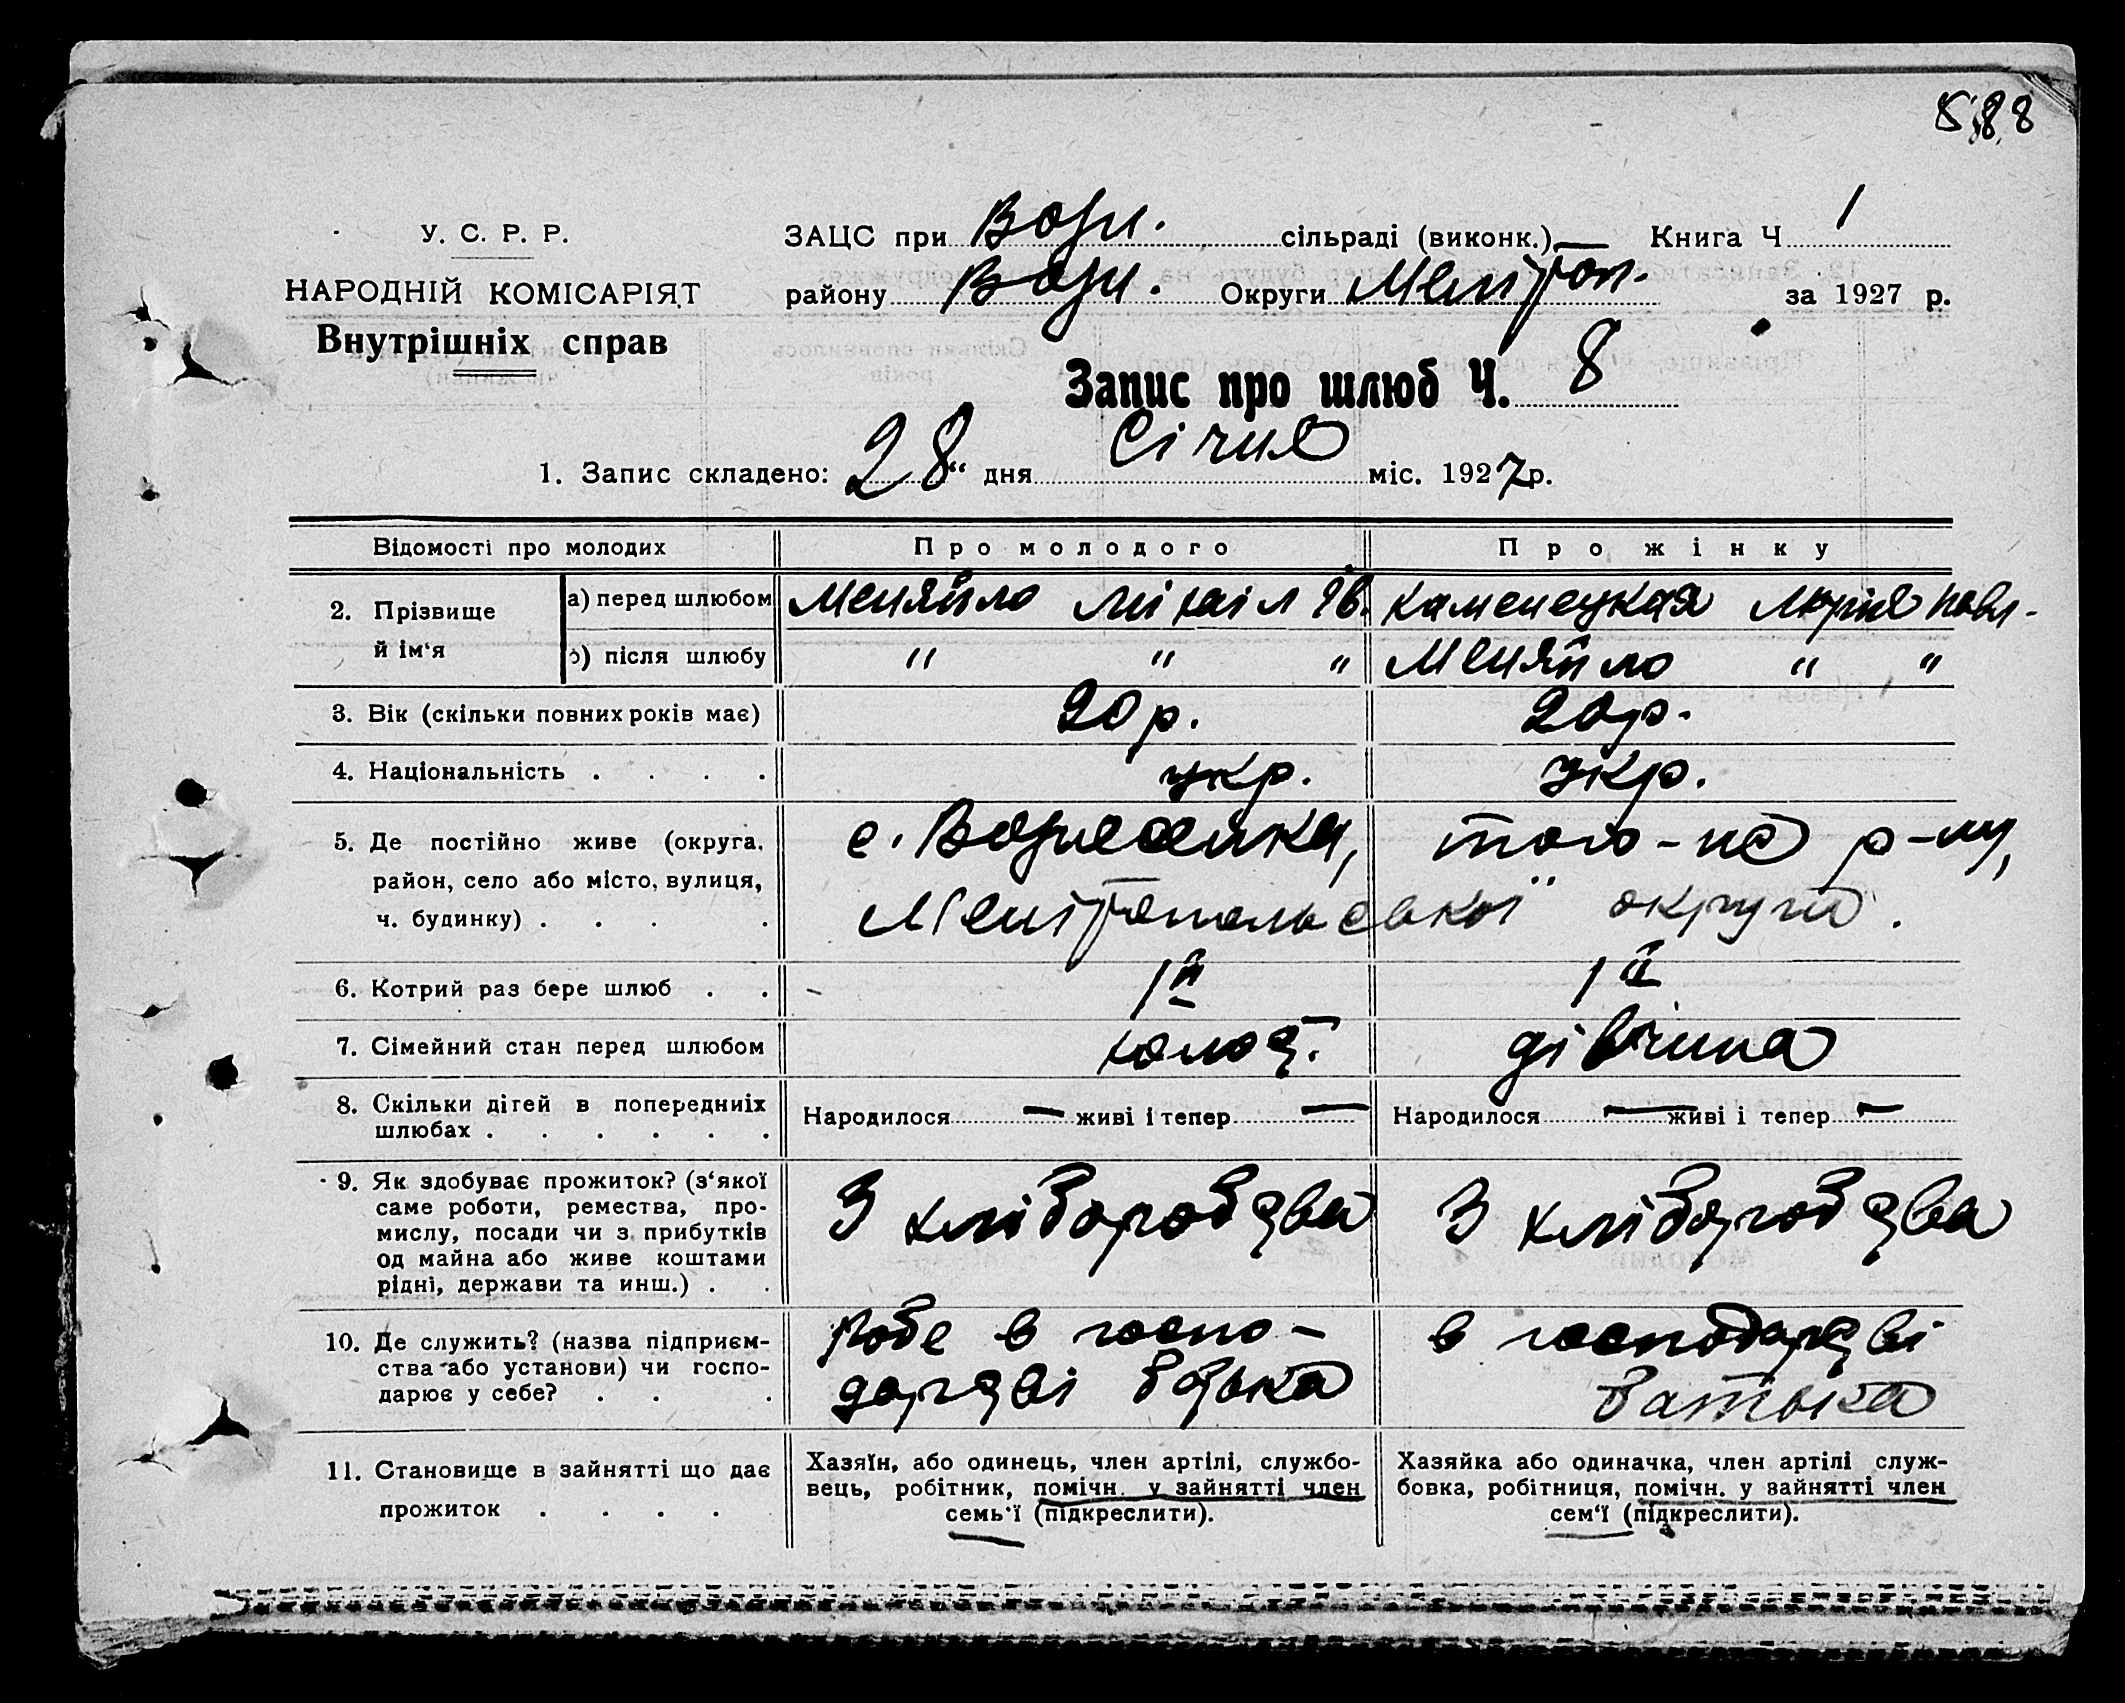 588
У. С. Р. Р.
НАРОДНІЙ КОМІСАРІЯТ
Внутрішніх справ
ЗАЦС при Возн. сільраді (виконк.) — Книга Ч 1
району Возн. Округи Меліtоп. за 1927 р.
Запис про шлюб Ч. 8
1. Запис складено: 28 “ дня Січня міс. 1927 р.
Відомості про молодих Про молодого Про жінку
2. Прізвище й ім‘я
а) перед шлюбом Меняйло Міхаіл Ів. Каменецкая Марія Павл.
б) після шлюбу " " " Меняйло " "
3. Вік (скільки повних років має) 20 р. 20 р.
4. Національність . . . . укр. укр.
5. Де постійно живе (округа, район, село або місто, вулиця, ч. будинку) . . . .
с. Вознесенка, того-же р-ну,
Мелітопольської округи.
6. Котрий раз бере шлюб . . 1й 1й
7. Сімейний стан перед шлюбом холост. дівчина
8. Скільки дітей в попередниіх шлюбах . . . . . .
Народилося — живі і тепер — Народилося — живі і тепер —
9. Як здобуває прожиток? (з‘якої
саме роботи, ремества, про-
мислу, посади чи з прибутків
од майна або живе коштами
рідні, держави та инш.) . .
З хліборобства З хліборобства
10. Де служить? (назва підприєм-
ства або установи) чи госпо-
дарює у себе? . . .
Робе в госпо-
дарстві батька
в господарстві
батька
11. Становище в зайнятті що дає
прожиток . . . .
Хазяїн, або одинець, член артілі, службо-
вець, робітник, помічн. у зайнятті член
семь‘ї (підкреслити).
Хазяйка або одиначка, член артілі служ-
бовка, робітниця, помічн. у зайнятті член
сем‘ї (підкреслити).